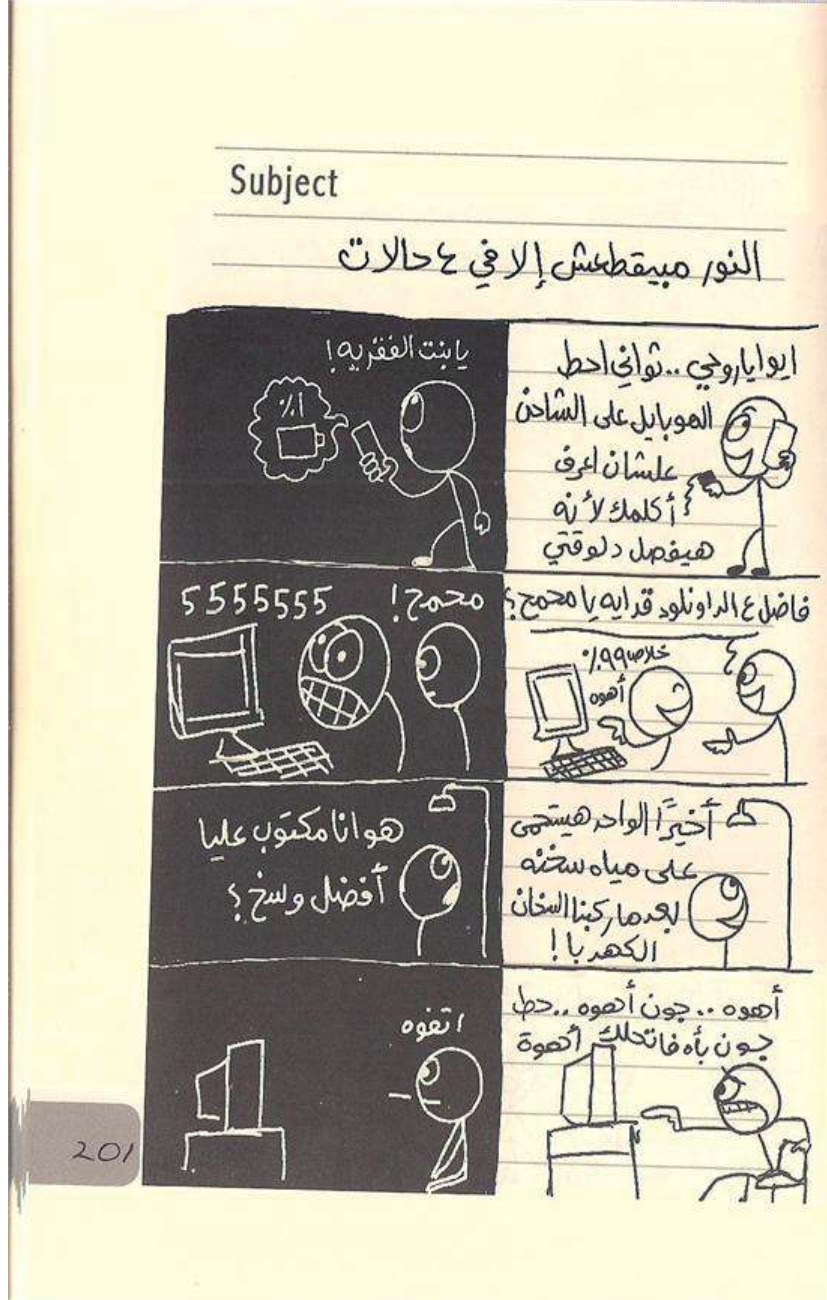 Subject
النور مبيقطعش إلا في ٤ حالات
ايوا ياروحي .. ثواني احط
الموبايل على الشاحن
علشان اعرف
أكلمك لأنه
هيفصل دلوقتي
يا بنت الفقريه!
١٪
فاضل ع الداونلود قد ايه يا محمح؟
خلاص ٩٩٪
أهوه
محمح!
5555555
أخيرًا الواحد هيستحمى
على مياه سخنه
بعد ما ركبنا السخان
الكهربا!
هو انا مكتوب عليا
أفضل وسخ؟
أهوه .. جون أهوه .. حط
جون بأه فاتحلك أهوة
اتفوه
201